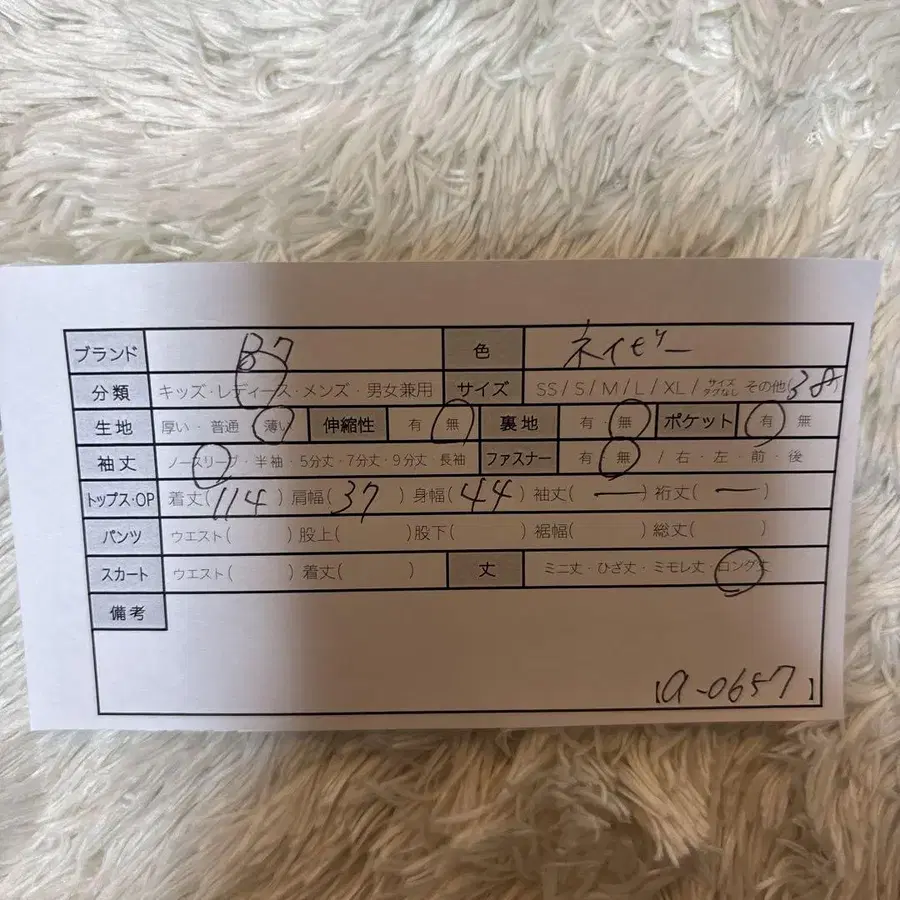 ブランド B7 色 ネイビー
分類 キッズ・レディース・メンズ・男女兼用 サイズ SS/S/M/L/XL/サイズタグなし その他(38)
生地 厚い・普通・薄い 伸縮性 有・無 裏地 有・無 ポケット 有・無
袖丈 ノースリーブ・半袖・5分丈・7分丈・9分丈・長袖 ファスナー 有・無 /右・左・前・後
トップス・OP 着丈(114) 肩幅(37) 身幅(44) 袖丈(ー) 裄丈(ー)
パンツ ウエスト( ) 股上( ) 股下( ) 裾幅( ) 総丈( )
スカート ウエスト( ) 着丈( ) 丈 ミニ丈・ひざ丈・ミモレ丈・ロング丈
備考
【a-0657】